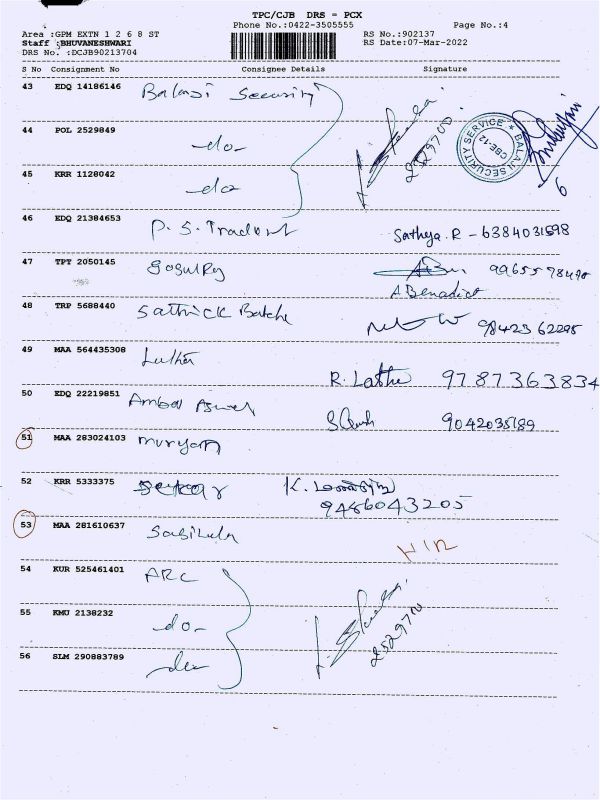 TPC/CJB DRS - PCX
Area :GPM EXTN 1 2 6 8 ST Phone No.:0422-3505555 RS No.:902137 Page No.:4
Staff :BHUVANESHWARI RS Date:07-Mar-2022
DRS No. :DCJB90213704
S No Consignment No Consignee Details Signature
43 EDQ 14186146 Balaji Security
BALAJI SECURITY SERVICE ★ CBE-12
44 POL 2529849 -do- 2529700
45 KRR 1128042 -do- 6
46 EDQ 21384653 P. S. Sathya. R - 6384031598
47 TPT 2050145 99655 78490
A Benadict
48 TRP 5688440 98423 62295
49 MAA 564435308 R. Lathe 9787363834
50 EDQ 22219851 9042035189
51 MAA 283024103
52 KRR 5333375 Sekar K.
9486043205
53 MAA 281610637
54 KUR 525461401 ARC
55 KMU 2138232 -do- 2529700
56 SLM 290883789 -do-